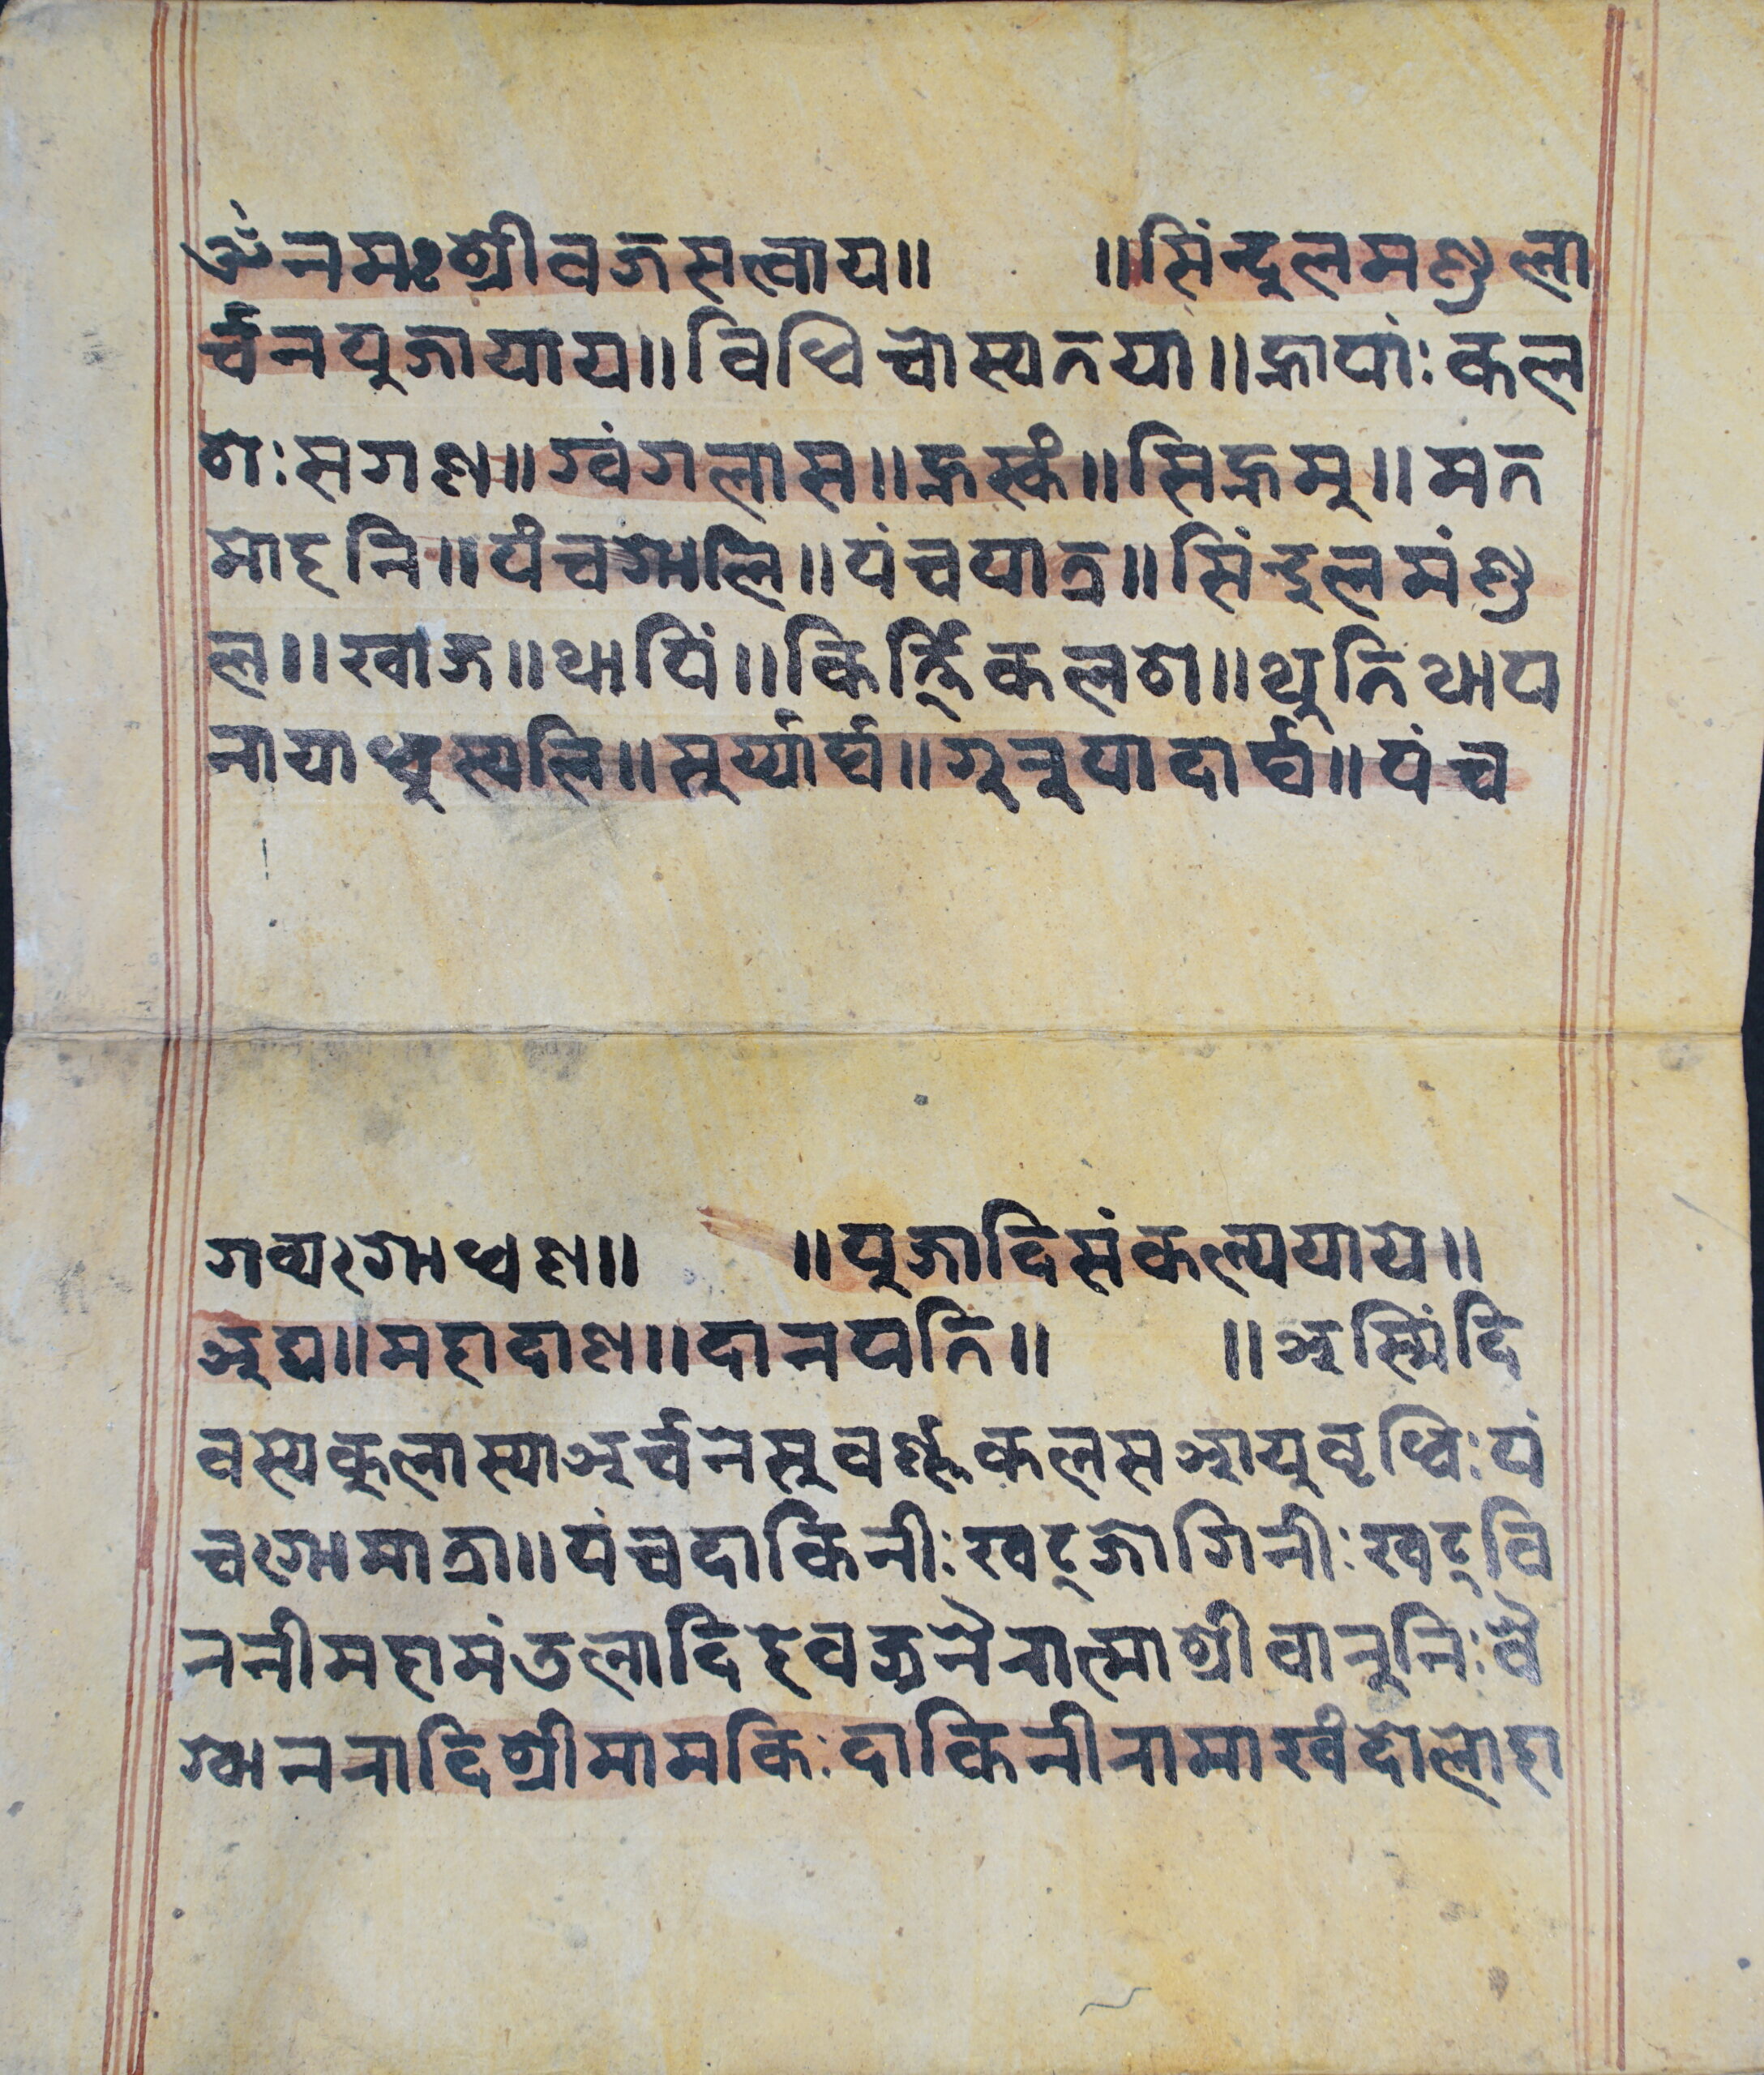 ॐ नमः श्रीवज्रसत्वाय ॥ ॥ सिंन्दुलमण्डला
र्च्चनपुजायाय ॥ विधि चोस्यतया ॥ ह्नापां ः कल
श ः सगण ॥ ग्वंगलास ॥ ह्नस्कं ॥ सिह्नमु ॥ मत
मोहनि ॥ पंचशालि ॥ पंचपात्र ॥ सिंन्दुलमंण्ड
ल ॥ खाज ॥ थापिं ॥ किर्त्तिकलश ॥ थुतिथाप
नायाधुस्यलि ॥ सुर्य्यार्घ ॥ गुरुपादार्घ ॥ पंच
गव्यशोधण ॥ ॥ पुजादिसंकल्पयाय ॥
अद्य ॥ महादाण ॥ दानपति ॥ ॥ अस्मिंदि
वस्यकुलास्याअर्च्चनेसुवर्ण्णकलसआयुवृधिः पं
चशोमात्रा ॥ पंचदाकिनीः खद्जोगिनीः खद्वि
ननीमहामंतलादिहेवज्रनैरात्माश्रीवारुनिः वै
ननरादिश्रीमामकिः दाकिनीरामाखंदोलोहा